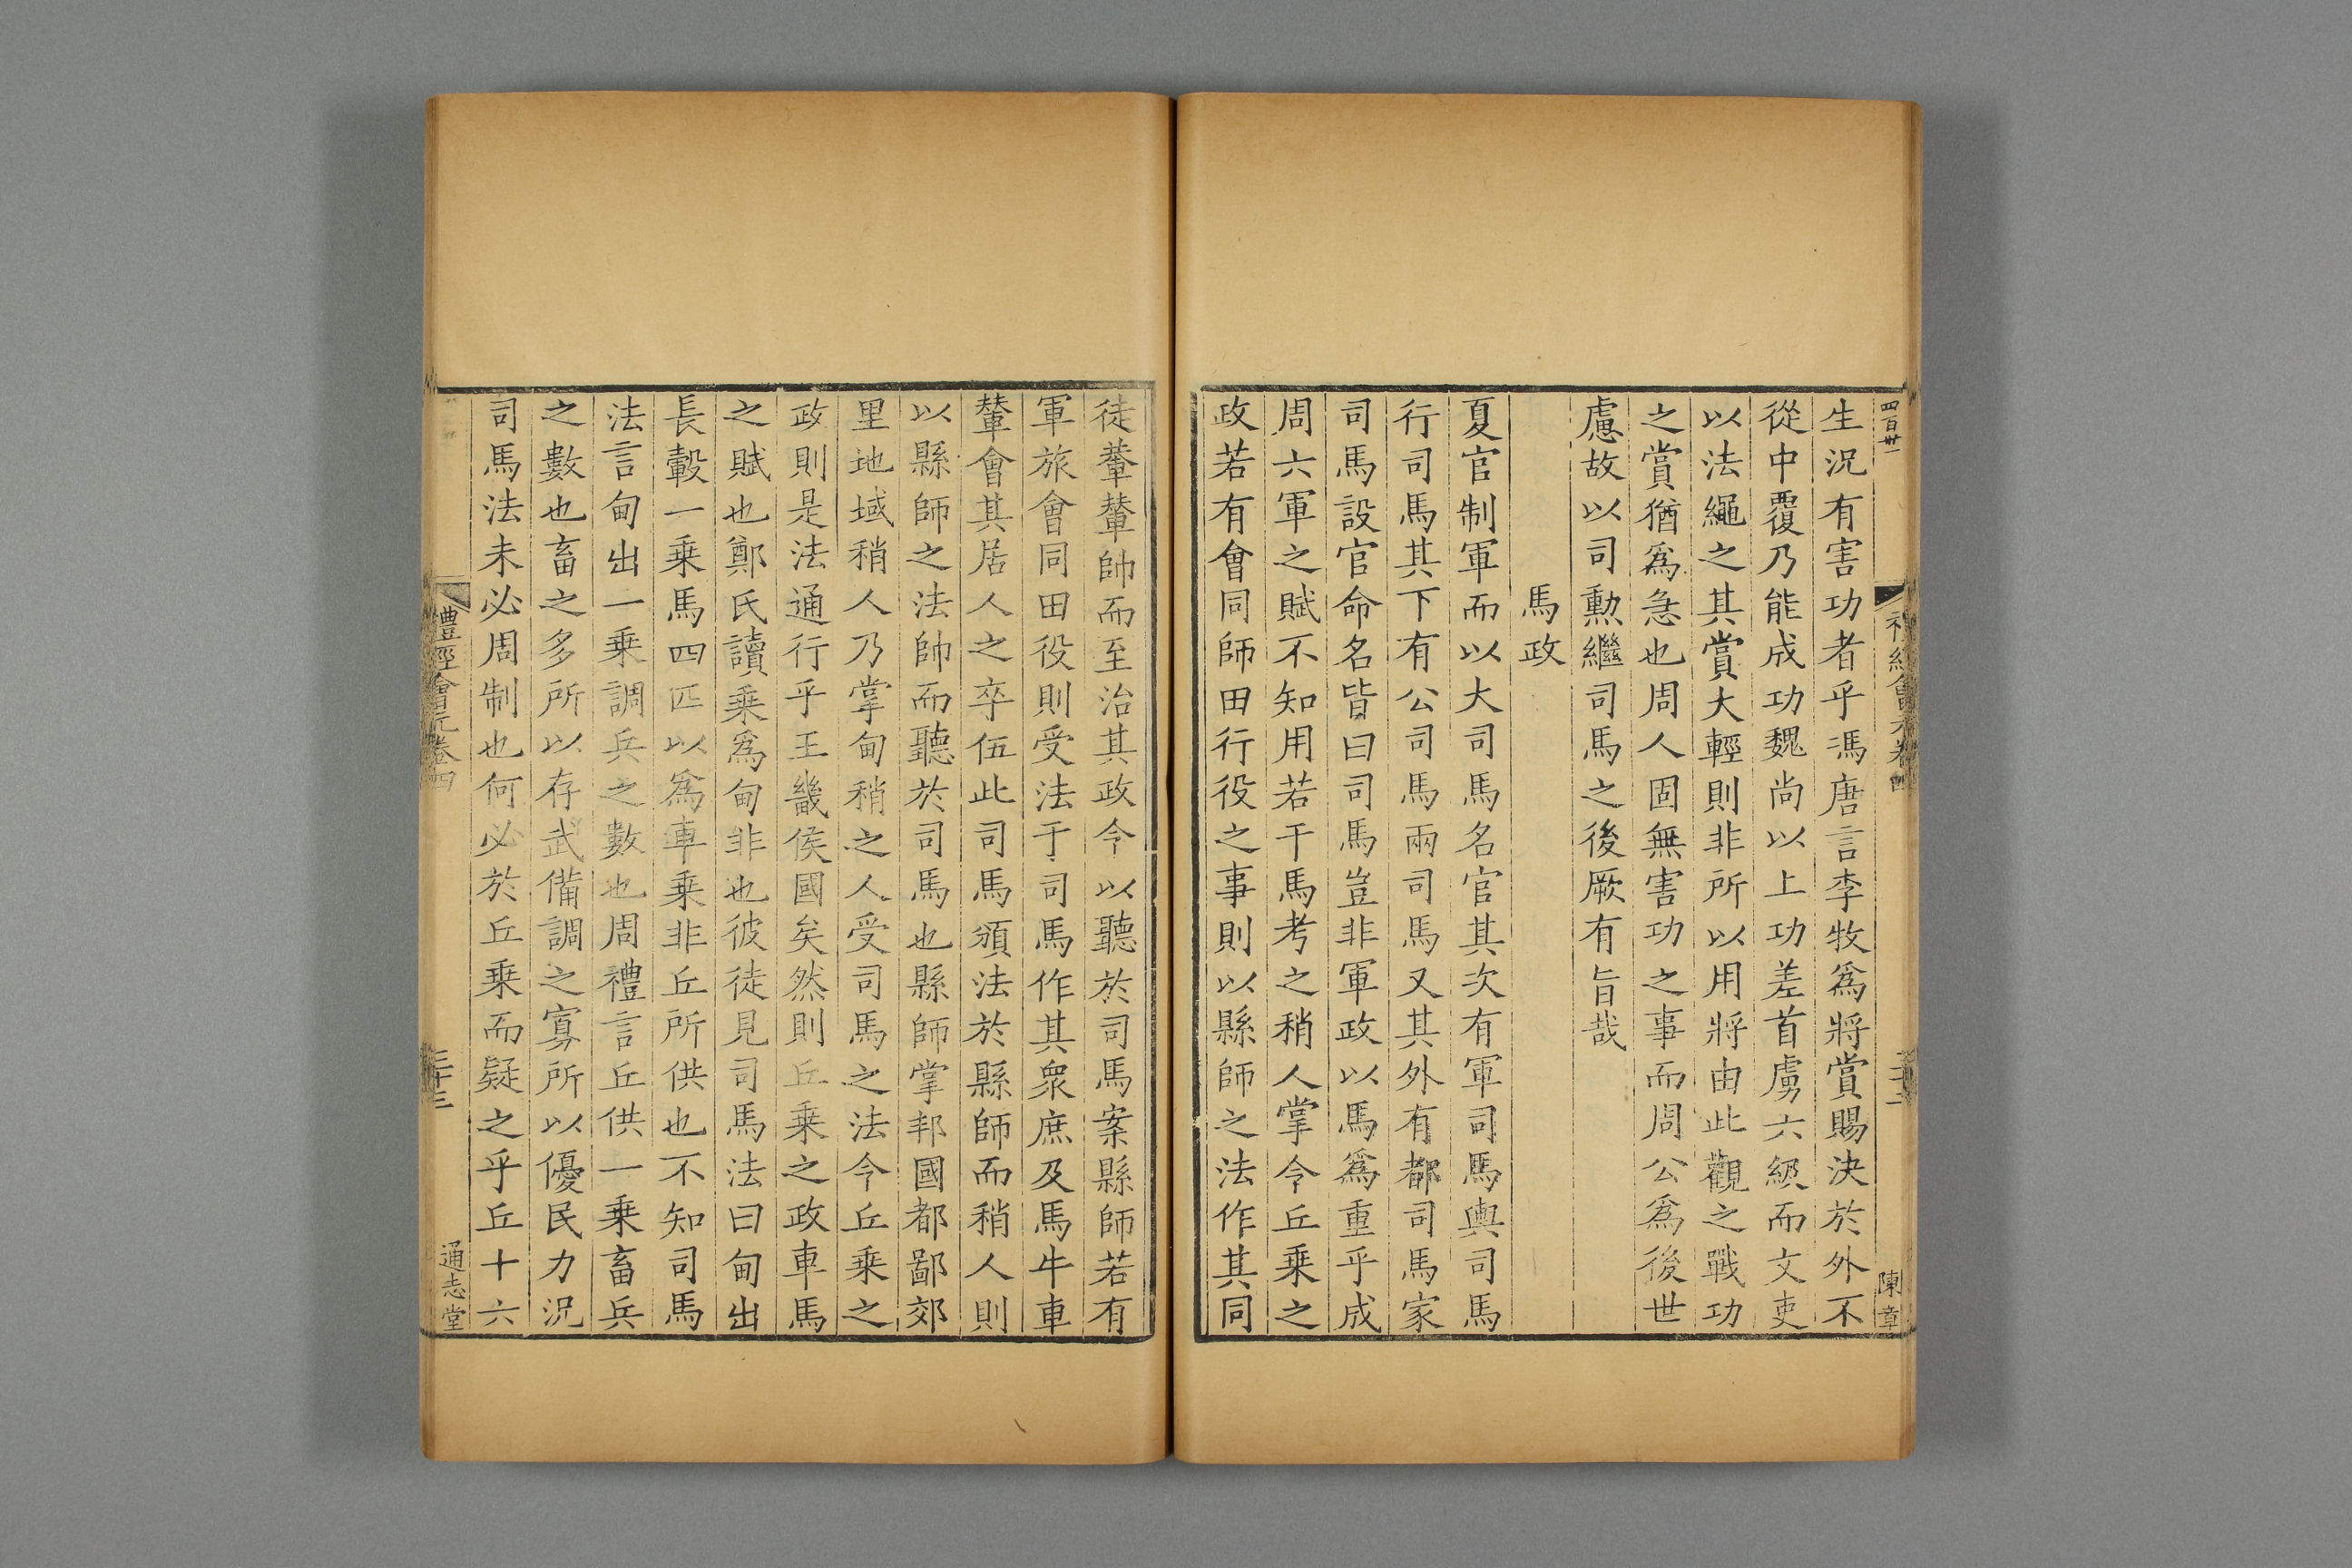 四百卅一
禮經會元卷四
三十二
陳章
生況有害功者乎馮唐言李牧爲將賞賜決於外不
從中覆乃能成功魏尚以上功差首虜六級而文吏
以法繩之其賞大輕則非所以用將由此觀之戰功
之賞猶爲急也周人固無害功之事而周公爲後世
慮故以司勲繼司馬之後厥有旨哉
馬政
夏官制軍而以大司馬名官其次有軍司馬輿司馬
行司馬其下有公司馬兩司馬又其外有都司馬家
司馬設官命名皆曰司馬豈非軍政以馬爲重乎成
周六軍之賦不知用若干馬考之稍人掌令丘乗之
政若有會同師田行役之事則以縣師之法作其同
徒輂輦帥而至治其政令以聽於司馬案縣師若有
軍旅會同田役則受法于司馬作其衆庶及馬牛車
輦會其居人之卒伍此司馬頒法於縣師而稍人則
以縣師之法帥而聽於司馬也縣師掌邦國都鄙郊
里地域稍人乃掌甸稍之人受司馬之法令丘乗之
政則是法通行乎王畿侯國矣然則丘乗之政車馬
之賦也鄭氏讀乗爲甸非也彼徒見司馬法曰甸出
長轂一乗馬四匹以爲車乗非丘所供也不知司馬
法言甸出一乗調兵之數也周禮言丘供一乗畜兵
之數也畜之多所以存武備調之寡所以優民力況
司馬法未必周制也何必於丘乗而疑之乎丘十六
禮經會元卷四
三十三
通志堂